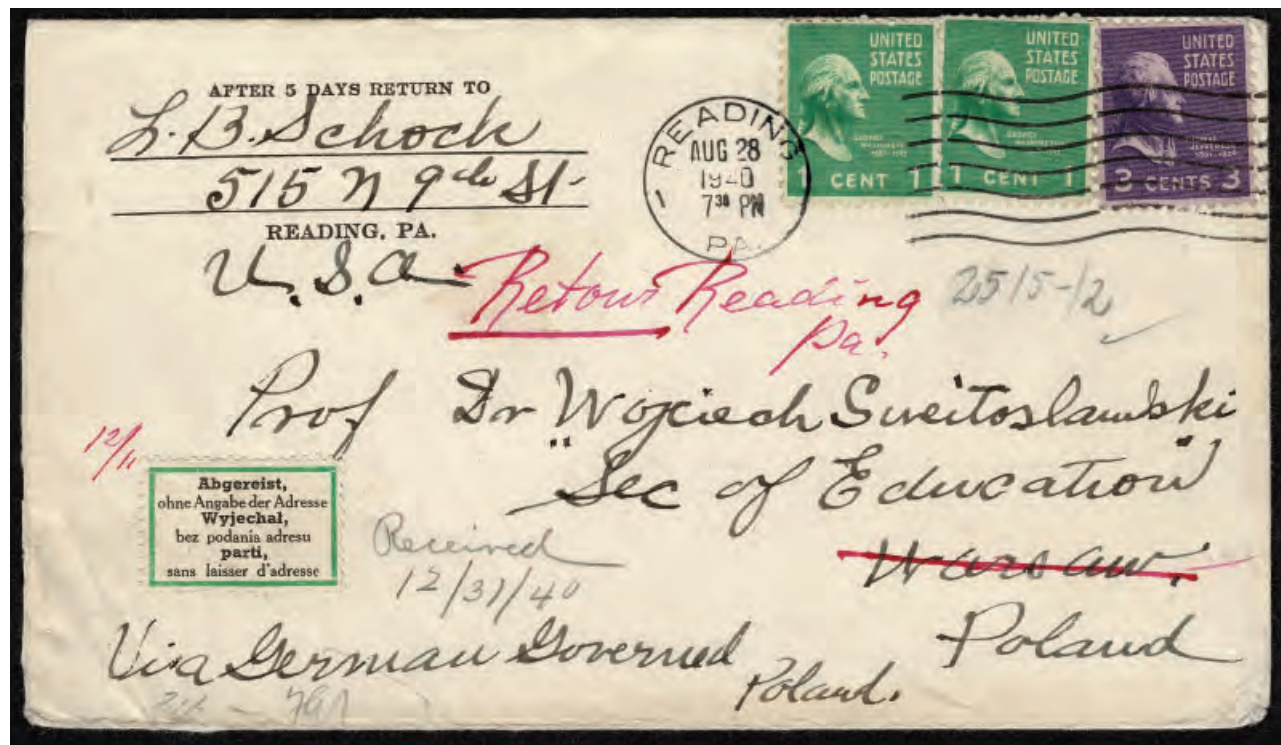 AFTER 5 DAYS RETURN TO
L. B. Schock
515 N 9th St
READING, PA.
U.S.A.
READING
AUG 28
1940
7 30 PM
PA.
1
UNITED
STATES
POSTAGE
GEORGE
WASHINGTON
1 CENT 1
UNITED
STATES
POSTAGE
GEORGE
WASHINGTON
1 CENT 1
UNITED
STATES
POSTAGE
JEFFERSON
3 CENTS 3
Retour Reading
Pa.
2515-12
Prof Dr Wojciech Sweitoslawski
"Sec of Education"
Warsaw.
Poland
12/11
Abgereist,
ohne Angabe der Adresse
Wyjechal,
bez podania adresu
parti,
sans laisser d'adresse
Received
12/31/40
Via German Governed
Poland.